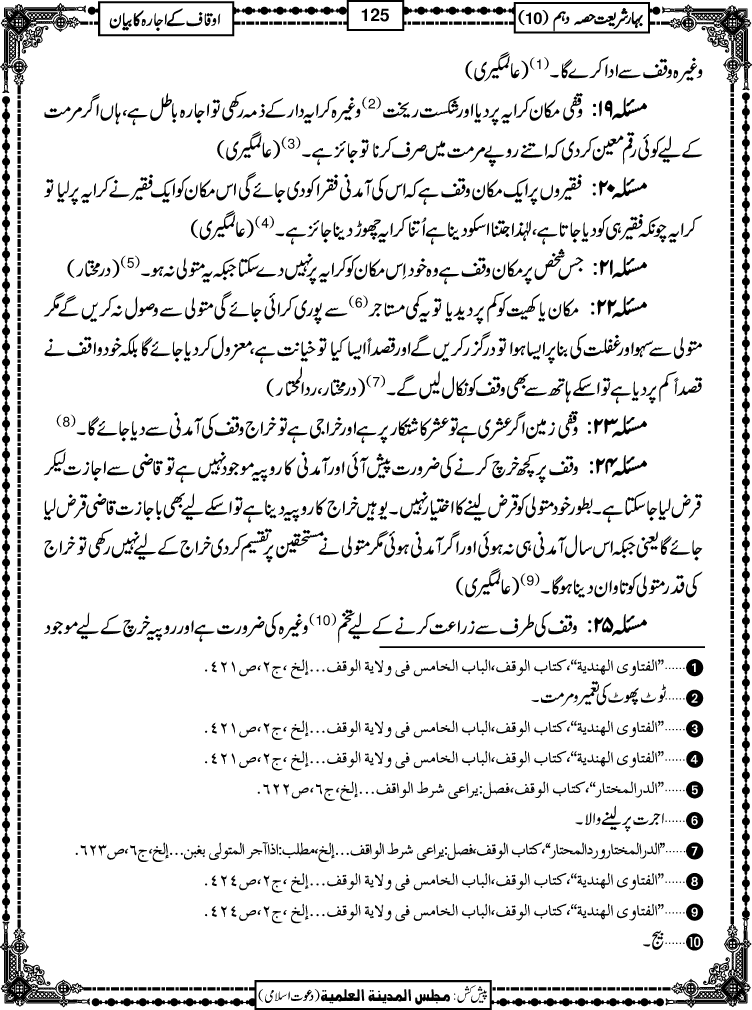 بہارشریعت حصہ دہم (10)
125
اوقاف کے اجارہ کا بیان
وغیرہ وقف سے ادا کرے گا۔(1) (عالمگیری)
مسئلہ ۱۹: وقفی مکان کرایہ پر دیا اور شکست ریخت(2) وغیرہ کرایہ دار کے ذمہ رکھی تو اجارہ باطل ہے، ہاں اگر مرمت
کے لیے کوئی رقم معین کردی کہ اتنے روپے مرمت میں صرف کرنا تو جائز ہے۔(3) (عالمگیری)
مسئلہ ۲۰: فقیروں پر ایک مکان وقف ہے کہ اس کی آمدنی فقرا کو دی جائے گی اس مکان کو ایک فقیر نے کرایہ پر لیا تو
کرایہ چونکہ فقیر ہی کو دیا جاتا ہے، لہٰذا جتنا اسکو دینا ہے اُتنا کرایہ چھوڑ دینا جائز ہے۔(4) (عالمگیری)
مسئلہ ۲۱: جس شخص پر مکان وقف ہے وہ خود اِس مکان کو کرایہ پر نہیں دے سکتا جبکہ یہ متولی نہ ہو۔(5) (درمختار)
مسئلہ ۲۲: مکان یا کھیت کو کم پر دیدیا تو یہ کمی مستاجر(6) سے پوری کرائی جائے گی متولی سے وصول نہ کریں گے مگر
متولی سے سہو اور غفلت کی بنا پر ایسا ہوا تو درگزر کریں گے اور قصداً ایسا کیا تو خیانت ہے، معزول کردیا جائے گا بلکہ خود واقف نے
قصداً کم پر دیا ہے تو اسکے ہاتھ سے بھی وقف کو نکال لیں گے۔(7) (درمختار، ردالمحتار)
مسئلہ ۲۳: وقفی زمین اگر عشری ہے تو عشر کاشتکار پر ہے اور خراجی ہے تو خراج وقف کی آمدنی سے دیا جائے گا۔(8)
مسئلہ ۲۴: وقف پر کچھ خرچ کرنے کی ضرورت پیش آئی اور آمدنی کا روپیہ موجود نہیں ہے تو قاضی سے اجازت لیکر
قرض لیا جاسکتا ہے۔ بطور خود متولی کو قرض لینے کا اختیار نہیں۔ یوہیں خراج کا روپیہ دینا ہے تو اسکے لیے بھی باجازت قاضی قرض لیا
جائے گا یعنی جبکہ اس سال آمدنی ہی نہ ہوئی اور اگر آمدنی ہوئی مگر متولی نے مستحقین پر تقسیم کردی خراج کے لیے نہیں رکھی تو خراج
کی قدر متولی کو تاوان دینا ہوگا۔(9) (عالمگیری)
مسئلہ ۲۵: وقف کی طرف سے زراعت کرنے کے لیے تخم(10) وغیرہ کی ضرورت ہے اور روپیہ خرچ کے لیے موجود
1......"الفتاوی الھندیة"، کتاب الوقف، الباب الخامس فی ولایة الوقف...إلخ، ج۲، ص۴۲۱.
2......ٹوٹ پھوٹ کی تعمیر و مرمت۔
3......"الفتاوی الھندیة"، کتاب الوقف، الباب الخامس فی ولایة الوقف...إلخ، ج۲، ص۴۲۱.
4......"الفتاوی الھندیة"، کتاب الوقف، الباب الخامس فی ولایة الوقف...إلخ، ج۲، ص۴۲۱.
5......"الدرالمختار"، کتاب الوقف، فصل: یراعی شرط الواقف...إلخ، ج۶، ص۶۲۲.
6......اجرت پر لینے والا۔
7......"الدرالمختاروردالمحتار"، کتاب الوقف، فصل: یراعی شرط الواقف...إلخ، مطلب: اذاآجر المتولی بغبن...إلخ، ج۶، ص۶۲۳.
8......"الفتاوی الھندیة"، کتاب الوقف، الباب الخامس فی ولایة الوقف...إلخ، ج۲، ص۴۲۴.
9......"الفتاوی الھندیة"، کتاب الوقف، الباب الخامس فی ولایة الوقف...إلخ، ج۲، ص۴۲۴.
10......بیج۔
پیش کش: مجلس المدینة العلمیة (دعوت اسلامی)